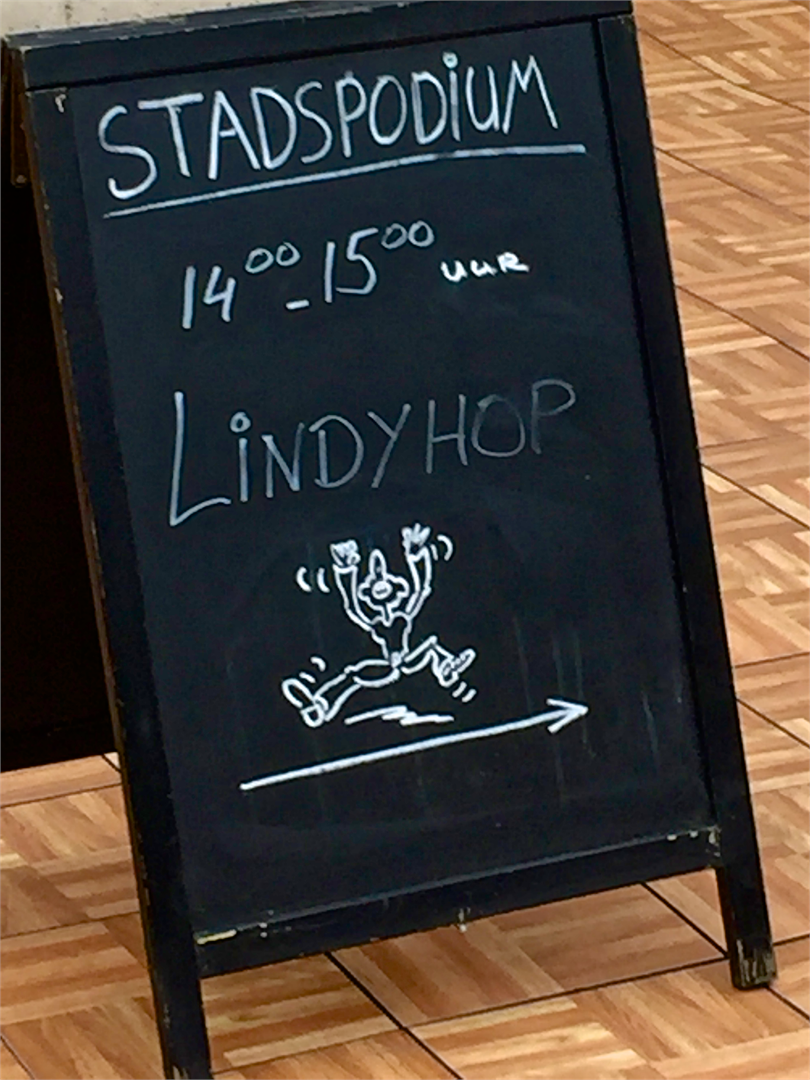 STADSPODiUM
14⁰⁰ - 15⁰⁰ uuR
LiNDYHOP